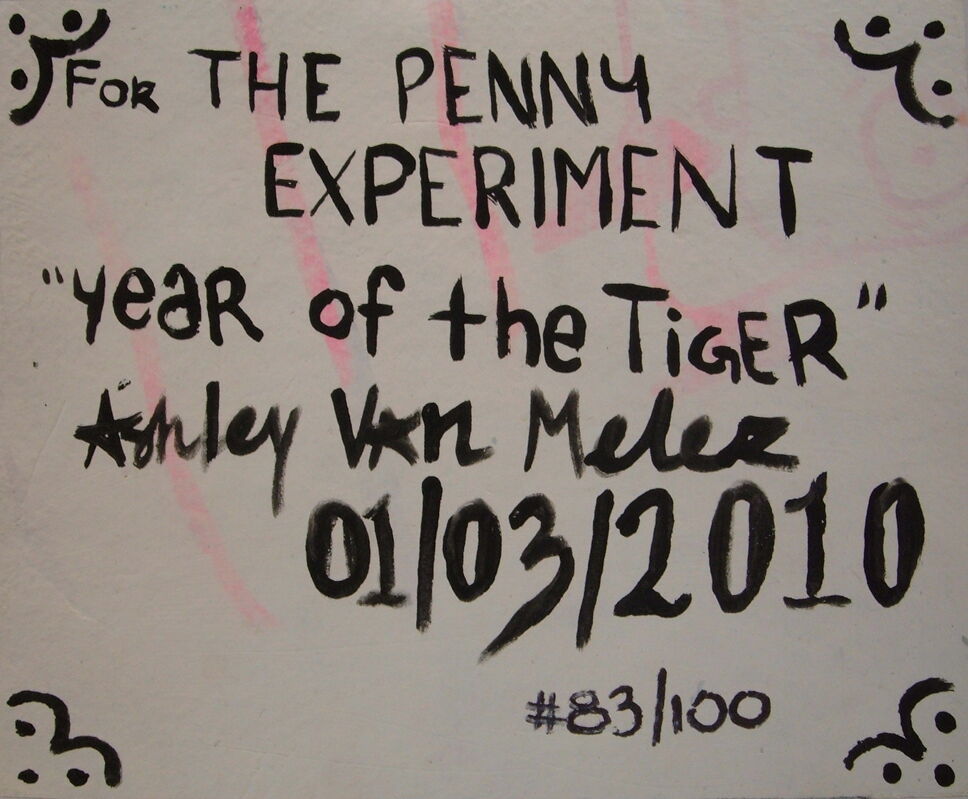 FOR THE PENNY
EXPERIMENT
"year of the TiGER"
Ashley Van Melez
01/03/2010
#83/100